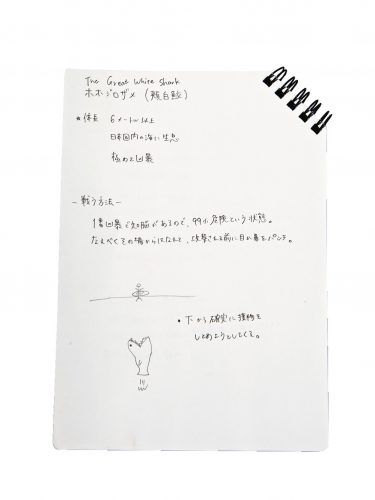 The Great White Shark
ホホジロザメ (頬白鮫)
★体長 6メートル以上
日本国内の海に生息
極めて凶暴
―戦う方法―
凶暴で知脳があるので、99%危険という状態。
なるべくその場からはなれて、攻撃される前に目か鼻をパンチ。
•下から確実に獲物を
しとめようとしてくる。